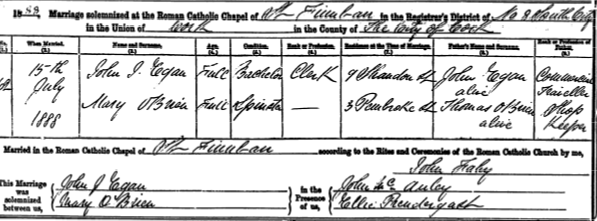 1888 Marriage solemnized at the Roman Catholic Chapel of St Finnbar in the Registrar's District of No 8 South City
in the Union of Cork in the County of The City of Cork
No. When Married. Name and Surname. Age. Condition. Rank or Profession. Residence at the Time of Marriage. Father's Name and Surname. Rank or Profession of Father.
15th July 1888 John J. Egan Full Bachelor Clerk 9 Shandon St John Egan alive Commercial Traveller
Mary O'Brien Full Spinster — 3 Pembroke St Thomas O'Brien alive Shop Keeper
Married in the Roman Catholic Chapel of St Finnbar according to the Rites and Ceremonies of the Roman Catholic Church by me,
John Fahy
This Marriage was solemnized between us, John J Egan Mary O'Brien in the Presence of us, John McAuley Ellie Prendergast